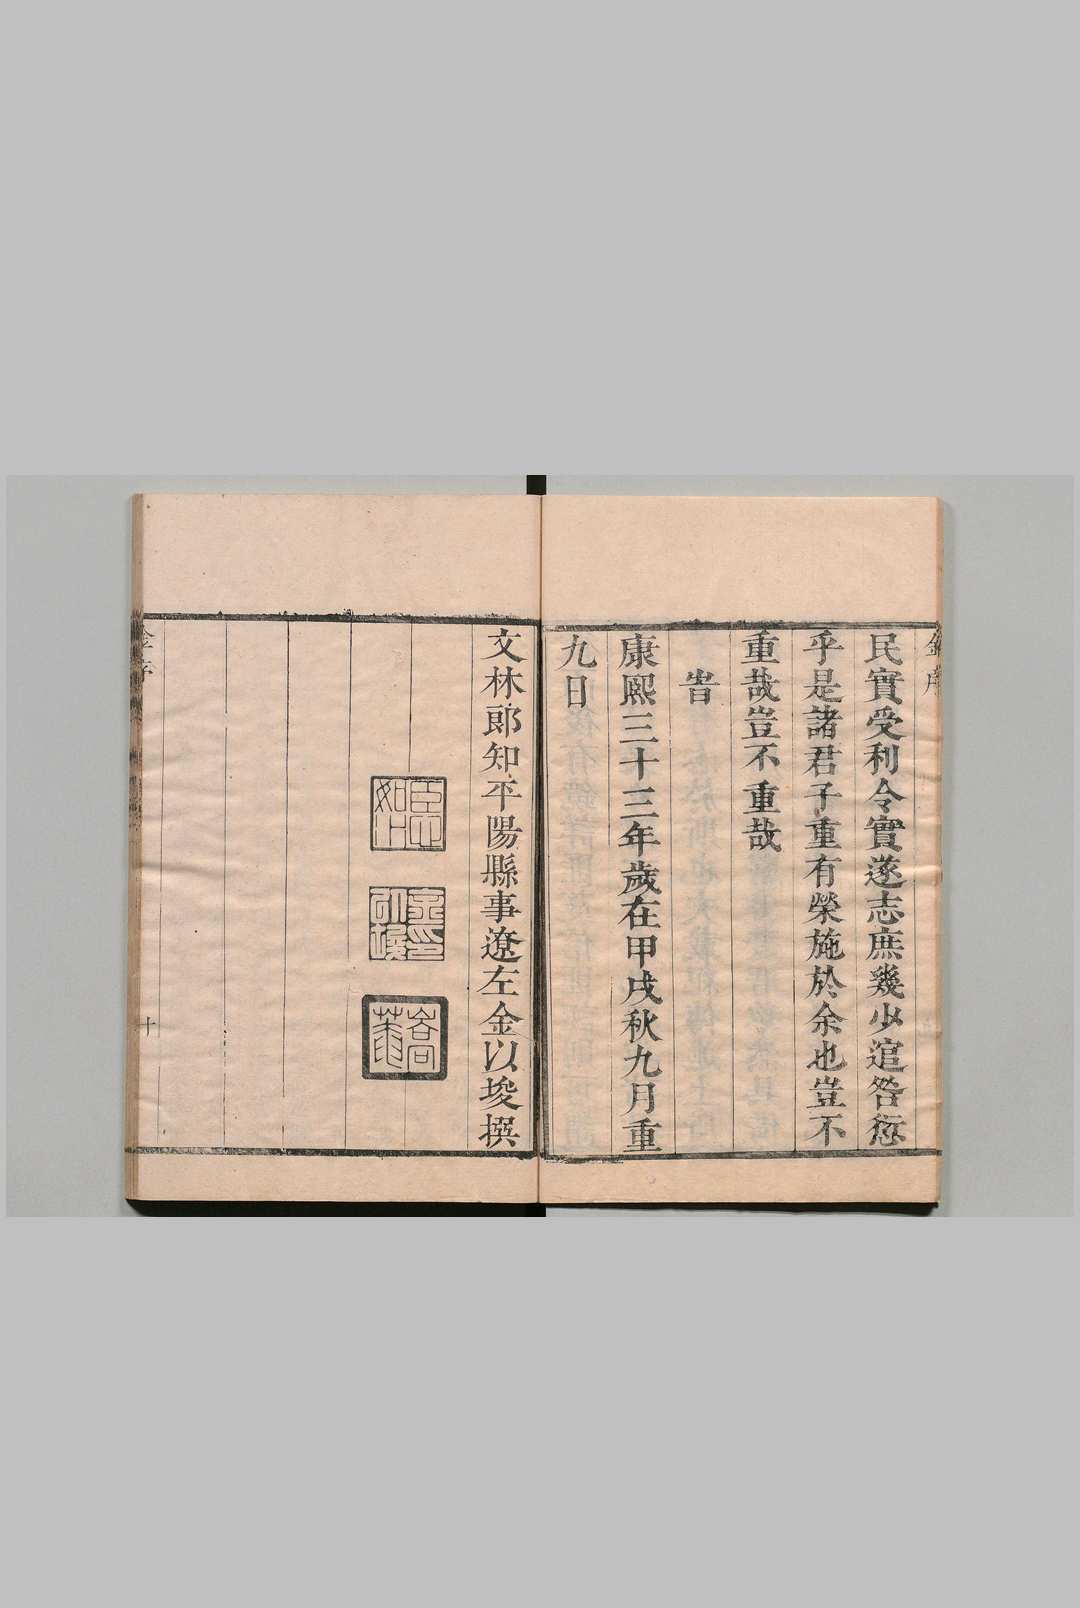 金序
民實受利令實遂志庶幾少逭咎愆
乎是諸君子重有榮施於余也豈不
重哉豈不重哉
旹
康熙三十三年歲在甲戌秋九月重
九日
文林郎知平陽縣事遼左金以埈撰
臣心如水
金印以埈
金序
十